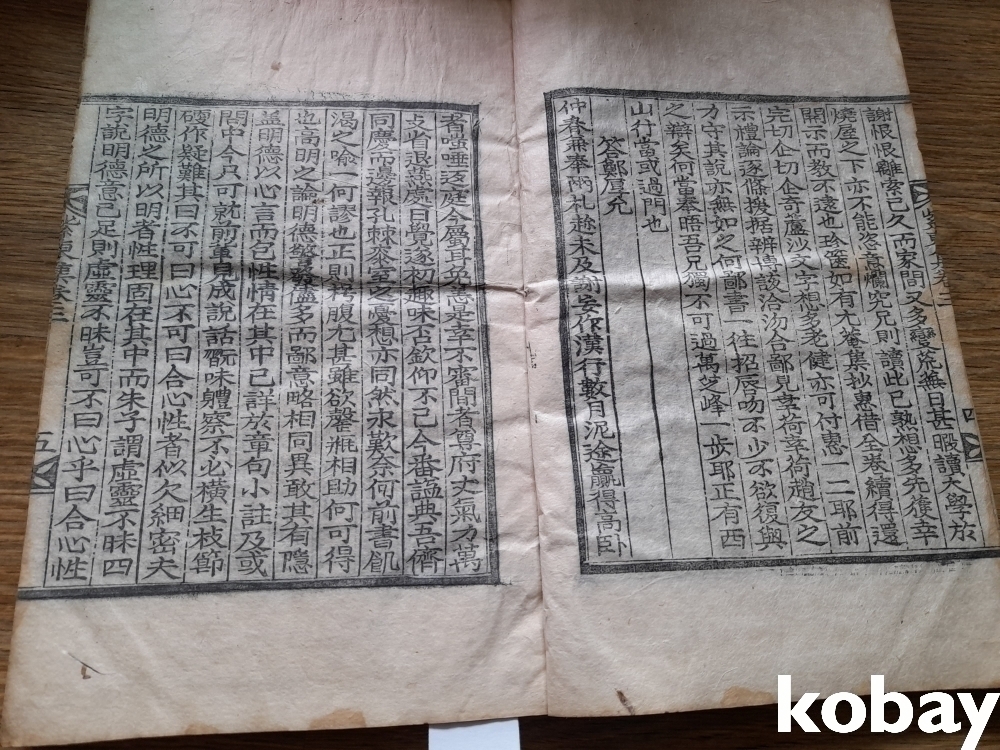 謝恨恨離索已久而家間又多變荒無日甚暇讀大學於
燒屋之下亦不能恣意爛究兄則讀此已熟想多先獲幸
開示而敎不逮也珍篋如有尤菴集抄惠借全卷續得還
完切企切企奇蘆沙文字想多老健亦可付惠一二耶前
示禮論逐條據辨博談洽沕合鄙見幸荷幸荷趙友之
力守其說亦無如之何鄙書一往招唇吻不少不欲復與
之辯矣何當奉晤吾兄獨不可過萬芝峰一步耶正有西
山行當或過門也
答鄭厚允
仲春兼奉兩札趁未及謝妄作漢行數月泥途贏得高臥
者嗤唾汝庭今屬耳免怎是幸不審閤者尊府丈氣力萬
支省退燕處日覺遂初趣味否欽仰不已今番謚典吾儕
同慶而邊報孔棘漆室之憂想亦同然永歎奈何前書飢
渴之喩一何謬也正則枵腹尤甚雖欲罄甁相助何可得
也高明之論明德盤儘多而鄙意略相同異敢其有隱
盖明德以心言而包性情在其中已詳於章句小註及或
問中今只可就前輩見成說話翫味體察不必橫生枝節
硬作疑難其曰不可曰心不可曰合心性者似欠細密夫
明德之所以明者性理固在其中而朱子謂虛靈不昧四
字說明德意已足則虛靈不昧豈可不曰心乎曰合心性
四
五
卷三
kobay